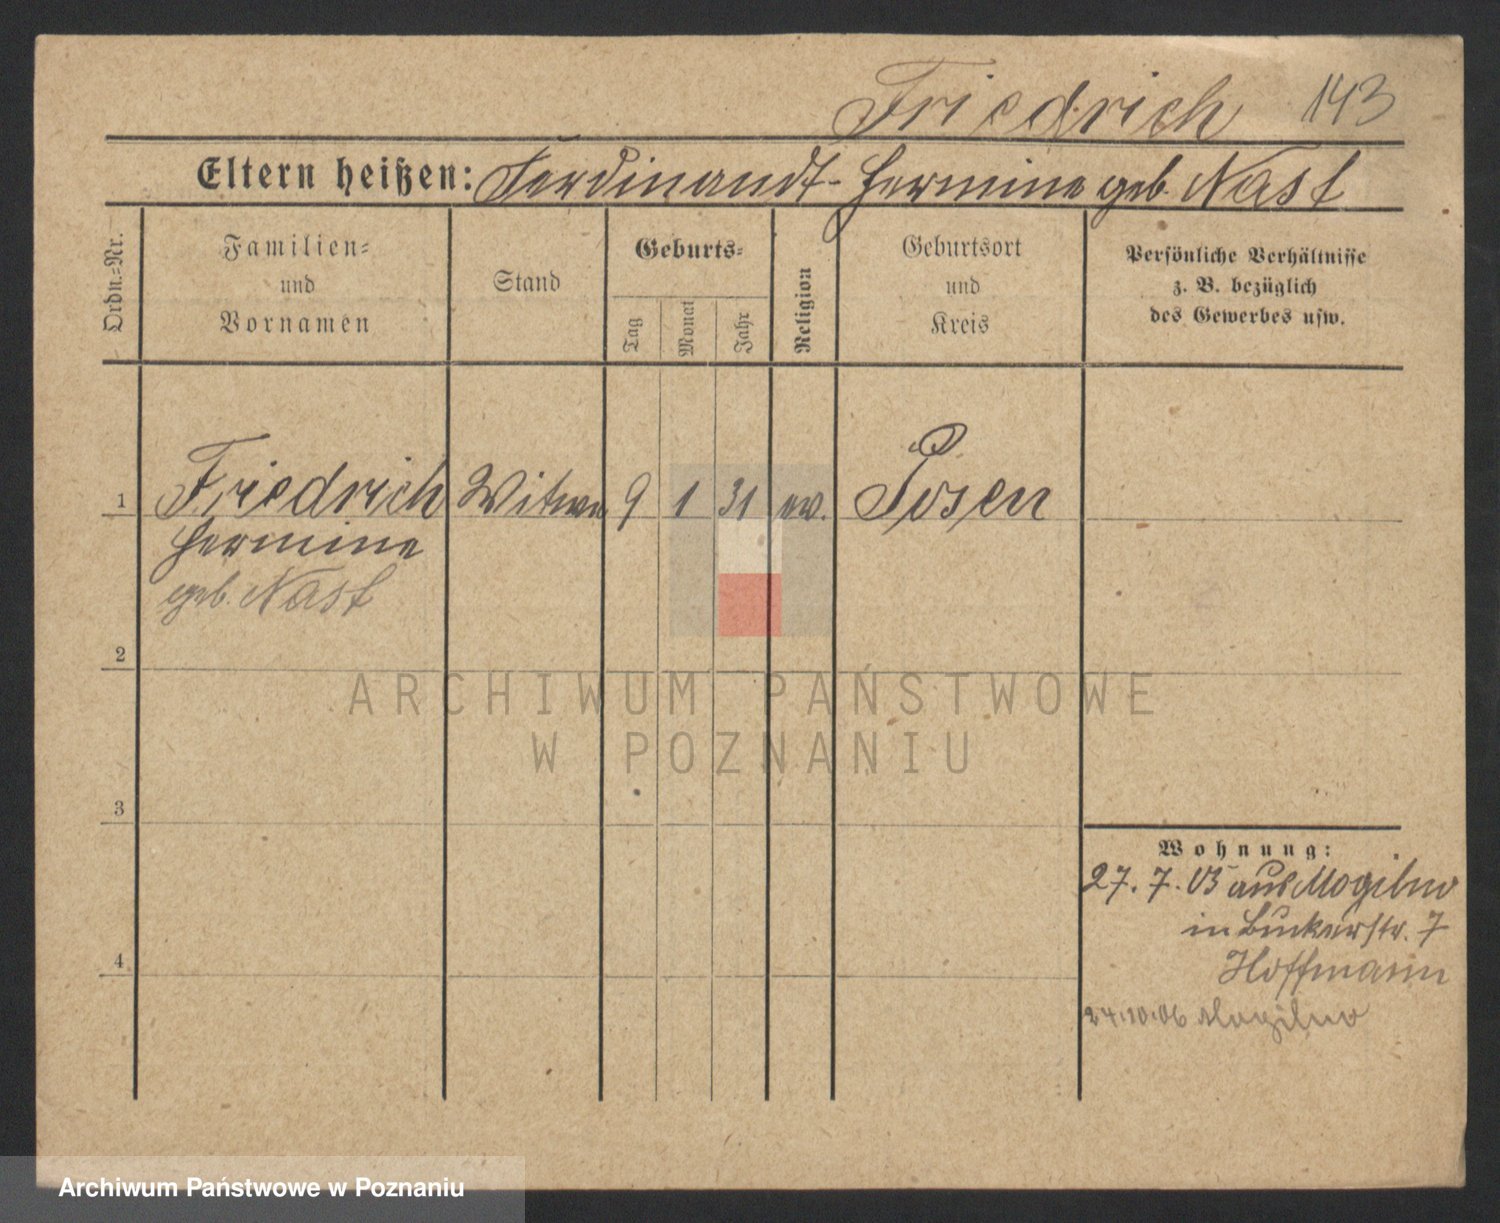 Friedrich 143
Eltern heißen: Ferdinandt - Hermine geb. Nast
Ordn.=Nr.
Familien=
und
Vornamen
Stand
Geburts=
Tag
Monat
Jahr
Religion
Geburtsort
und
Kreis
Persönliche Verhältnisse
z. B. bezüglich
des Gewerbes usw.
1 Friedrich Witwe 9 1 31 ev. Posen
Hermine
geb. Nast
2
3
4
Wohnung:
27. 7. 03 aus Mogilno
in Buckerstr. 7
Hoffmann
24.10.06 Mogilno
ARCHIWUM PAŃSTWOWE
W POZNANIU
Archiwum Państwowe w Poznaniu